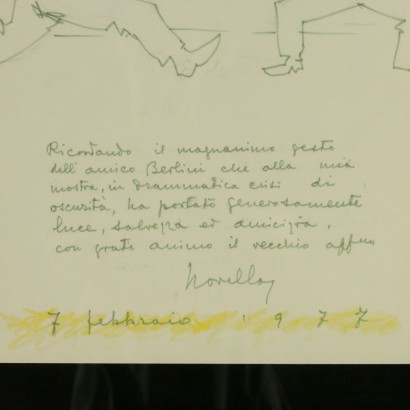 Ricordando il magnanimo gesto
dell'amico Berlini che alla mia
mostra, in drammatica crisi di
oscurità, ha portato generosamente
luce, salvezza ed amicizia,
con grato animo il vecchio affmo
Novello
7 febbraio 1977